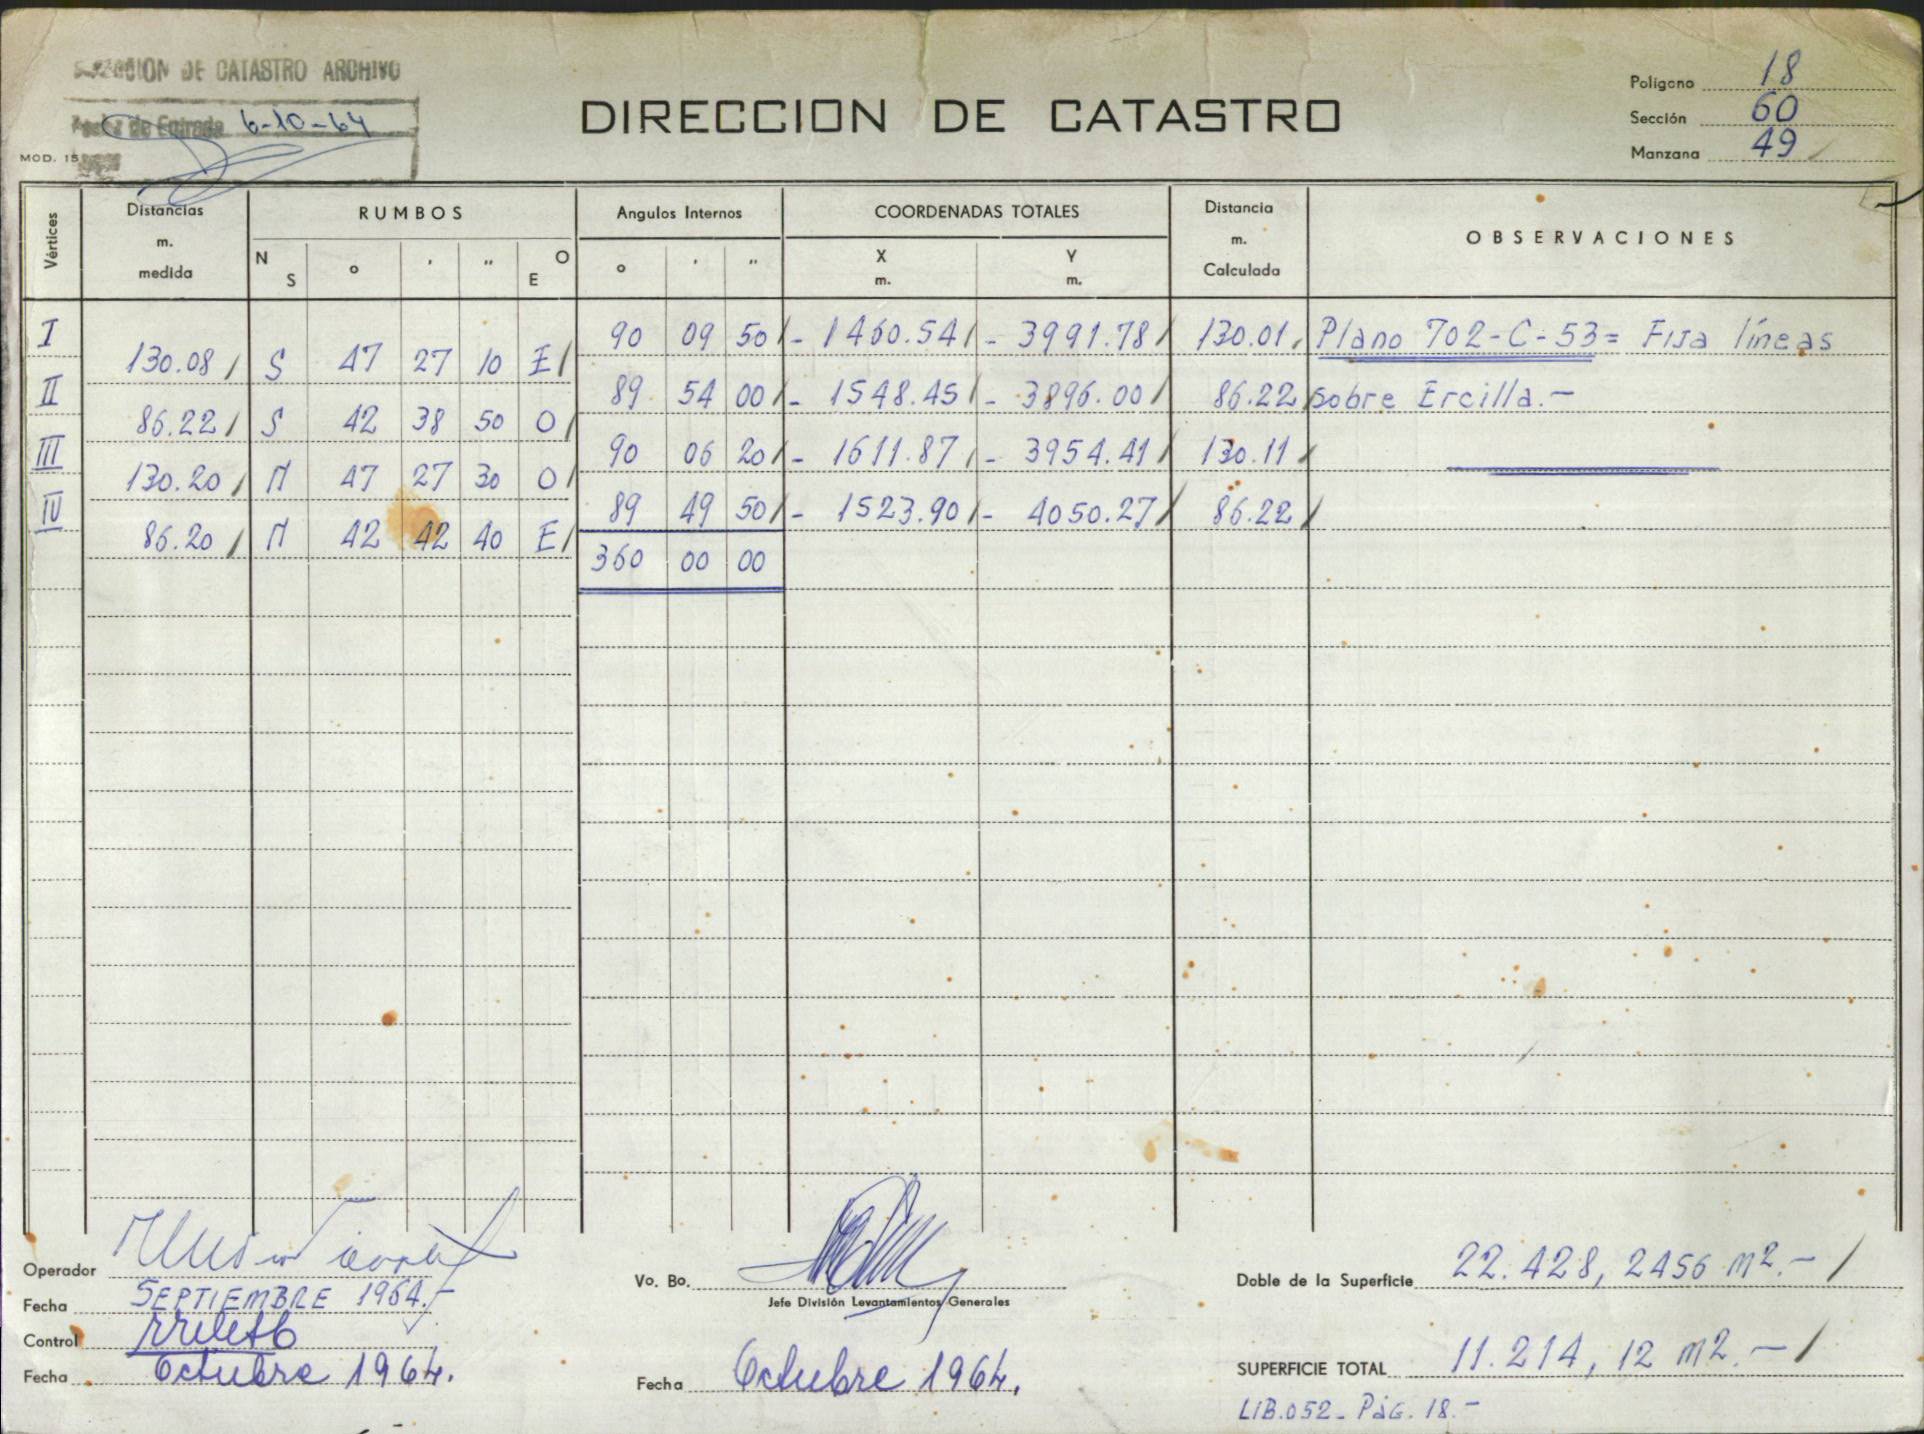 DE CATASTRO ARCHIVO
de Entrada 6-10-64
MOD. 15
DIRECCION DE CATASTRO
Polígono 18
Sección 60
Manzana 49
Vértices
Distancias m. medida
RUMBOS
N S ° ' " O E
Angulos Internos
° ' "
COORDENADAS TOTALES
X m. Y m.
Distancia m. Calculada
OBSERVACIONES
I 90 09 50 - 1460.54 - 3991.78 130.01 Plano 702-C-53 = Fija líneas
130.08 S 47 27 10 E
II 89 54 00 - 1548.45 - 3896.00 86.22 sobre Ercilla.-
86.22 S 42 38 50 O
III 90 06 20 - 1611.87 - 3954.41 130.11
130.20 N 47 27 30 O
IV 89 49 50 - 1523.90 - 4050.27 86.22
86.20 N 42 42 40 E
360 00 00
Operador
Fecha SEPTIEMBRE 1964.-
Control
Fecha Octubre 1964.
Vo. Bo.
Jefe División Levantamientos Generales
Fecha Octubre 1964.
Doble de la Superficie 22.428,2456 m2.-
SUPERFICIE TOTAL 11.214,12 m2.-
LIB.052- Pág. 18.-